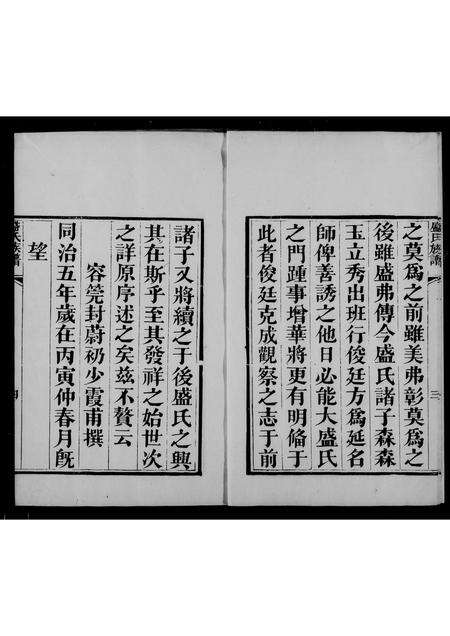 盛氏族譜
三
之莫爲之前雖美弗彰莫爲之
後雖盛弗傳今盛氏諸子森森
玉立秀出班行俊廷方爲延名
師俾善誘之他日必能大盛氏
之門踵事增華將更有明脩于
此者俊廷克成觀察之志于前
諸子又將續之于後盛氏之興
其在斯乎至其發祥之始世次
之詳原序述之矣茲不贅云
容筦封蔚礽少霞甫撰
同治五年歲在丙寅仲春月旣
望
氏族譜